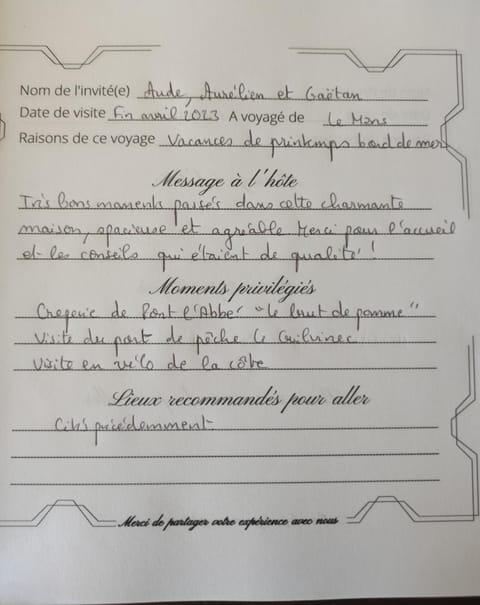 Nom de l'invité(e) Aude, Aurélien et Gaëtan
Date de visite Fin avril 2023 A voyagé de Le Mans
Raisons de ce voyage Vacances de printemps bord de mer
Message à l'hôte
Très bons moments passés dans cette charmante
maison, spacieuse et agréable Merci pour l'accueil
et les conseils qui étaient de qualité !
Moments privilégiés
Creperie de Pont l'Abbé "le bout de pomme"
Visite du port de pêche le Guilvinec
Visite en vélo de la côte
Lieux recommandés pour aller
Cités précédemment
Merci de partager votre expérience avec nous